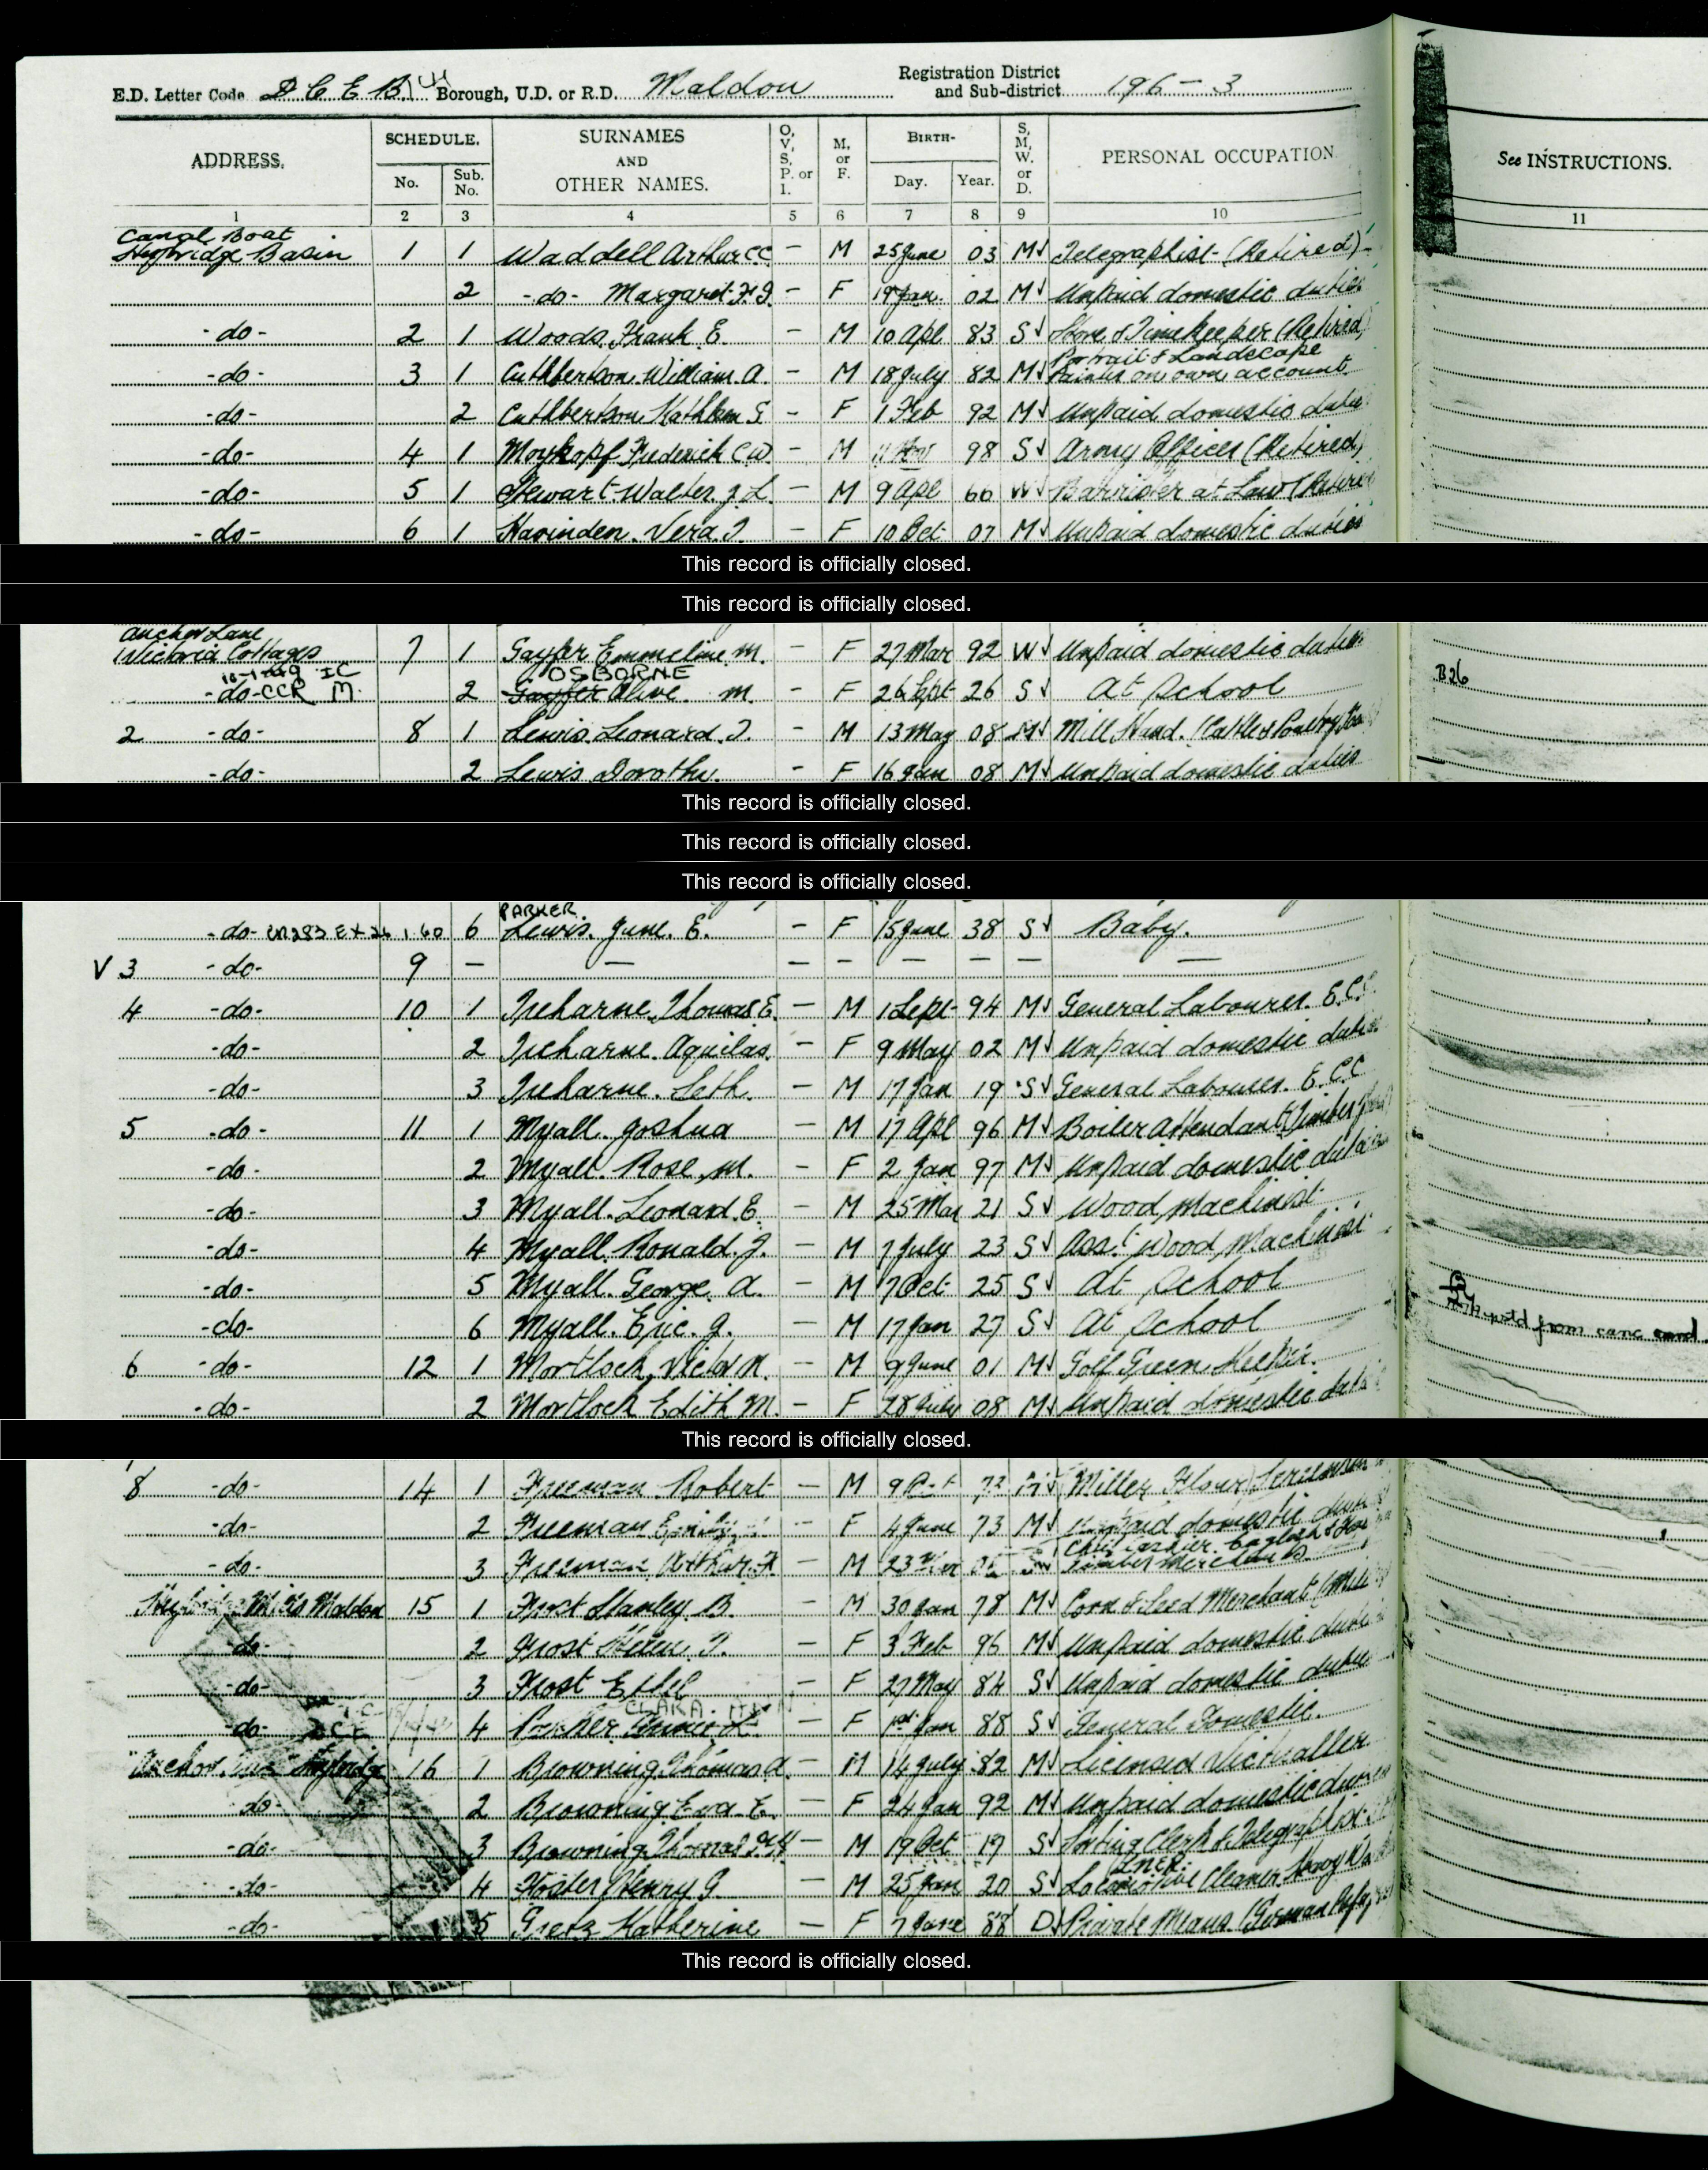 E.D. Letter Code D C E B 14 Borough, U.D. or R.D. Maldon Registration District and Sub-district 196-3
ADDRESS. SCHEDULE. No. Sub. No. SURNAMES AND OTHER NAMES. O, V, S, P. or I. M. or F. BIRTH- Day. Year. S, M, W. or D. PERSONAL OCCUPATION See INSTRUCTIONS.
1 2 3 4 5 6 7 8 9 10 11
Canal Boat
Heybridge Basin 1 1 Waddell Arthur CC - M 25 June 03 M Telegraphist (Retired)
2 -do- Margaret - F 19 Jan 02 M Unpaid domestic duties
-do- 2 1 Woods. Frank E - M 10 Apl 83 S Store & Timekeeper (Retired)
Portrait & Landscape
-do- 3 1 Cuthbertson. William. A. - M 18 July 82 M on own account.
-do- 2 Cuthbertson Kathleen - F 1 Feb 92 M Unpaid domestic duties
-do- 4 1 Moykopf Frederick C W - M 98 S Army Officer (Retired)
-do- 5 1 Stewart-Walter. J. L. - M 9 Apl 66 W Barrister at Law (Retired
-do- 6 1 Havinden. Vera. - F 10 Oct 07 M Unpaid domestic duties
This record is officially closed.
This record is officially closed.
Anchor Lane
1 Victoria Cottages 7 1 Gayfer Emmeline M. - F 27 Mar 92 W Unpaid domestic duties
OSBORNE
-do- CCR M 2 Gayfer Olive M. - F 26 Sept 26 S At School B26
2 -do- 8 1 Lewis. Leonard. - M 13 May 08 M Mill Hand. (Cattle & Poultry
-do- 2 Lewis Dorothy. - F 16 Jan 08 M Unpaid domestic duties
This record is officially closed.
This record is officially closed.
This record is officially closed.
PARKER
-do- 6 Lewis. June. E. - F 15 June 38 S Baby.
V 3 -do- 9 - - - - - - - -
4 -do- 10 1 Treharne. Thomas E. - M 1 Sept 94 M General Labourer. E.C.C.
-do- 2 Treharne. Aquilas. - F 9 May 02 M Unpaid domestic duties
-do- 3 Treharne. Seth. - M 17 Jan 19 S General Labourer. E.C.C
5 -do- 11. 1 Myall. Joshua - M 17 Apl 96 M Boiler Attendant (Timber
-do- 2 Myall. Rose. M. - F 2 Jan 97 M Unpaid domestic duties
-do- 3 Myall. Leonard. E. - M 25 Mar 21 S Wood Machinist
-do- 4 Myall. Ronald. J. - M 7 July 23 S Asst Wood Machinist
-do- 5 Myall. George. A. - M 7 Oct 25 S At School
-do- 6 Myall. Eric. J. - M 17 Jan 27 S At School from canc card
6 -do- 12 1 Mortlock, Victor - M 9 June 01 M Golf Green Keeper.
-do- 2 Mortlock Edith M. - F 28 July 08 M Unpaid domestic duties
This record is officially closed.
8 -do- 14 1 Freeman Robert - M 9 Oct 73 M Miller Flour
-do- 2 Freeman Emily - F 4 June 73 M Unpaid domestic duties
-do- 3 Freeman Arthur - M 23 Timber Merchants
Heybridge Mills Maldon 15 1 Frost Stanley B. - M 30 Jan 78 M Corn & Seed Merchant
-do- 2 Frost Helen - F 3 Feb 96 M Unpaid domestic duties
-do- 3 Frost Ethel - F 27 May 84 S Unpaid domestic duties
CLARA
-do- 4 - F 1st Jan 88 S General Domestic.
Anchor Heybridge 16 1 Browning. Thomas A. - M 14 July 82 M Licensed Victualler
-do- 2 Browning. Eva. E. - F 24 Jan 92 M Unpaid domestic duties
-do- 3 Browning. Thomas - M 19 Oct 17 S Sorting Clerk & Telegraphist
LNER
-do- 4 Foster Henry G. - M 25 Jan 20 S Locomotive Cleaner Heavy
-do- 5 Gretz Katherine - F 7 June 88 D Private Means (German
This record is officially closed.